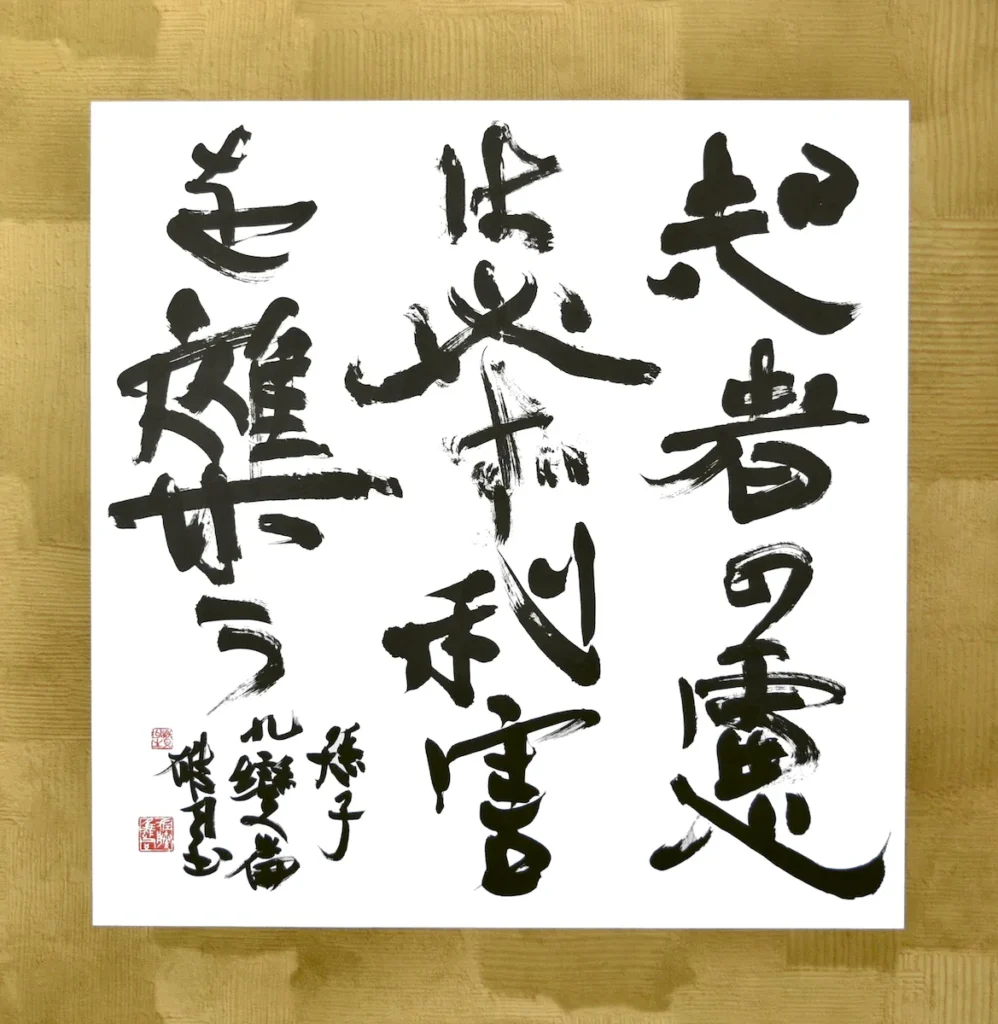 知者の慮
は必ず利害
を雜う
孫子
九變篇